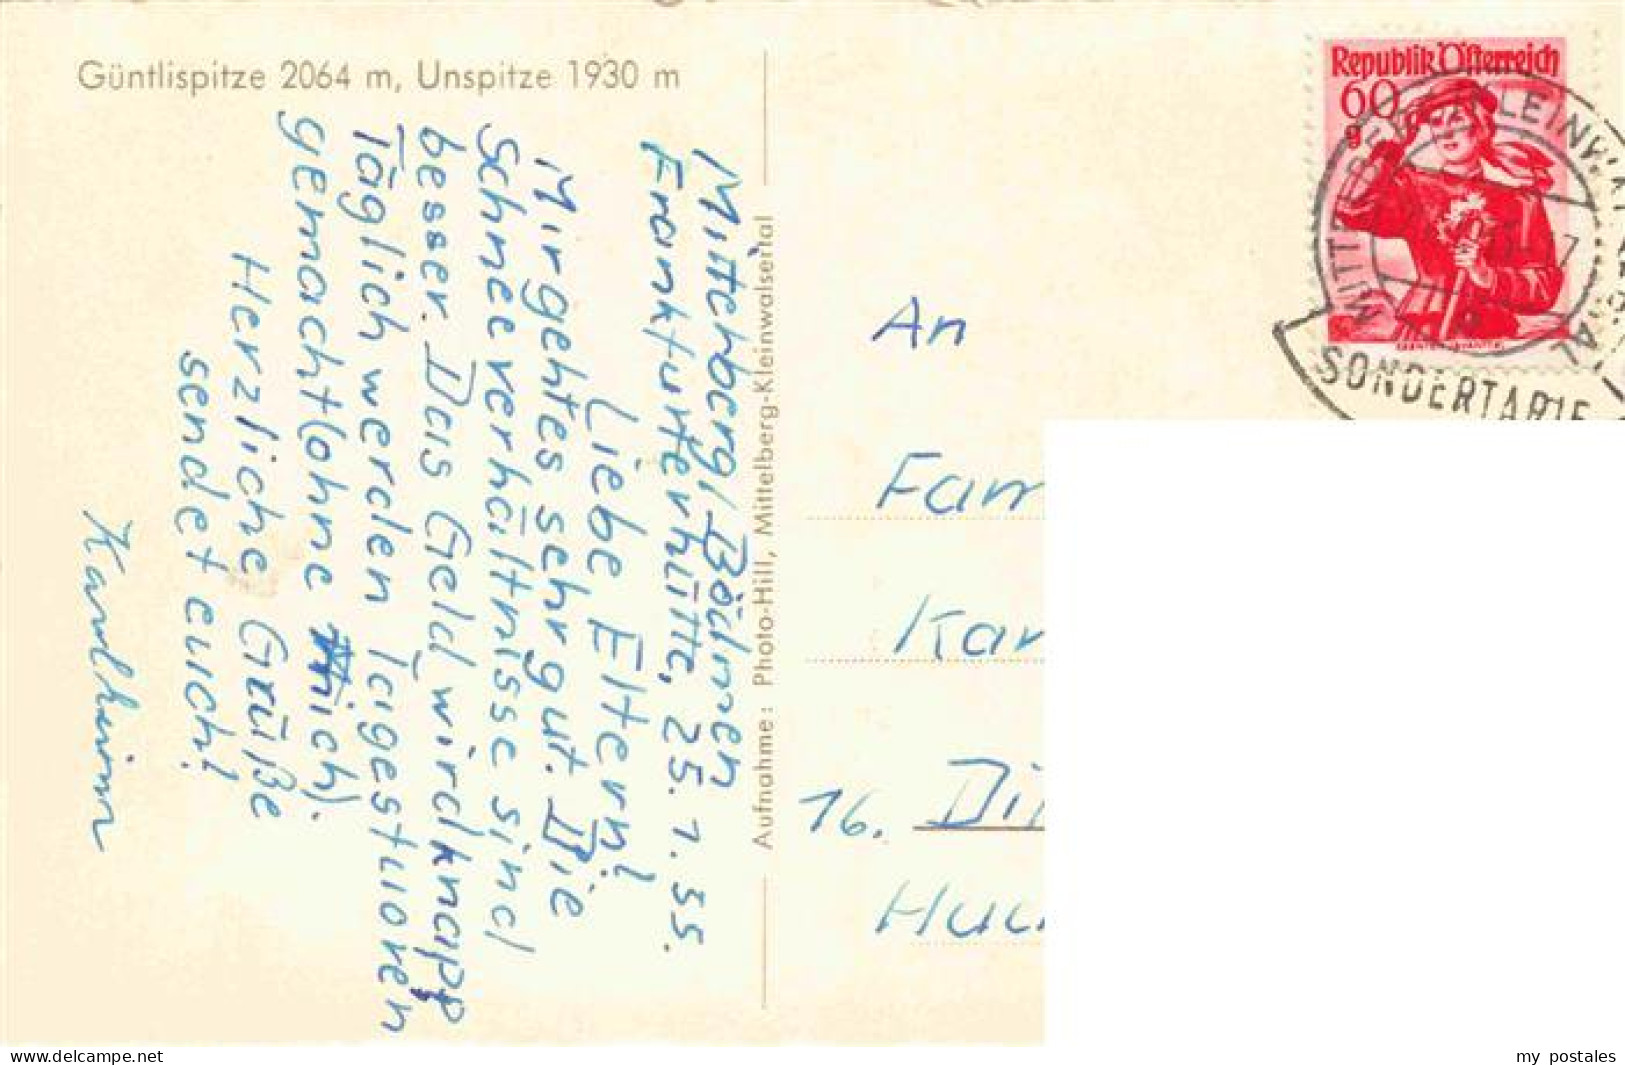 Güntlispitze 2064 m, Unspitze 1930 m
Mittelberg / Bödmen
Frankfurterhütte, 25. 1. 55.
Liebe Eltern!
Mir geht es sehr gut. Die
Schneeverhältnisse sind
besser. Das Geld wird knapp
Täglich werden Tagestouren
gemacht (ohne mich).
Herzliche Grüße
sendet euch!
Karlheinz
Aufnahme: Photo-Hill, Mittelberg-Kleinwalsertal
Republik Österreich
60
g
SONDERTARIF
An
Fam
Kar
16. Dil
delcampe.net
my_postales